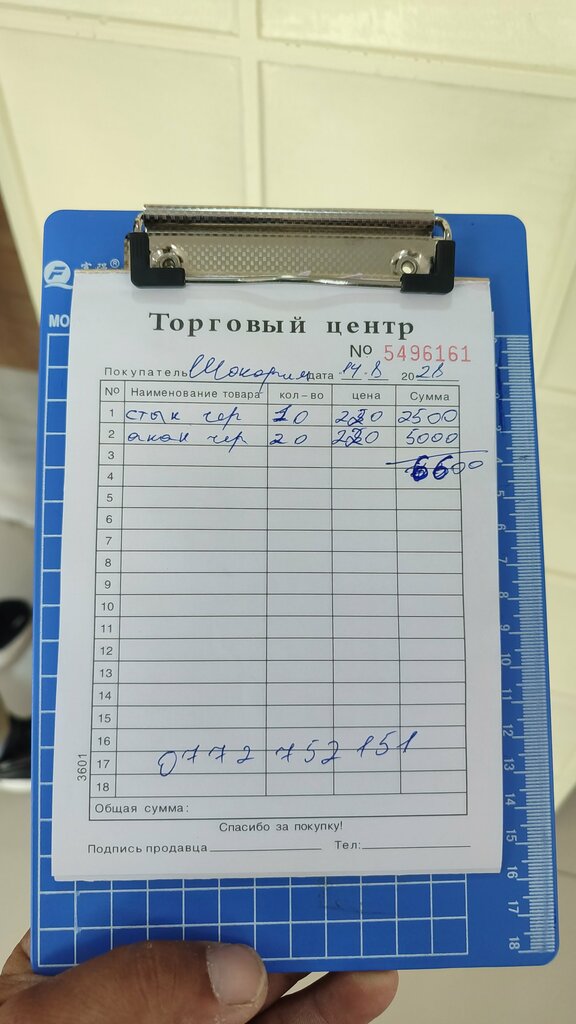 MO
Торговый центр
№ 5496161
Покупатель дата 14.8 2023
№ Наименование товара кол-во цена Сумма
1 стык чер 10 220 2500
2 чер 20 220 5000
3
6600
4
5
6
7
8
9
10
11
12
13
14
15
16
0772 752 151
17
18
3601
Общая сумма:
Спасибо за покупку!
Подпись продавца Тел:
8
9
10
11
12
13
14
15
16
17
18